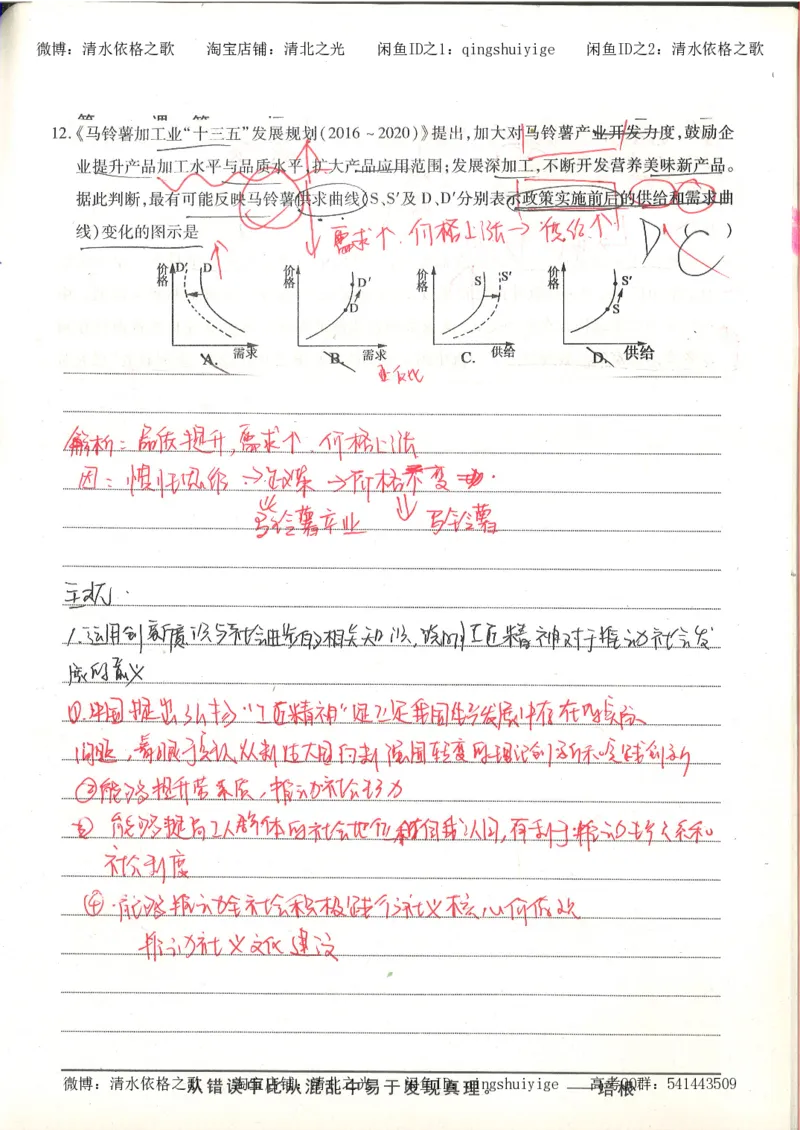 微博：清水依格之歌 淘宝店铺：清北之光 闲鱼ID之1：qingshuiyige 闲鱼ID之2：清水依格之歌
12.《马铃薯加工业“十三五”发展规划(2016～2020)》提出,加大对马铃薯产业开发力度,鼓励企
业提升产品加工水平与品质水平,扩大产品应用范围;发展深加工,不断开发营养美味新产品。
据此判断,最有可能反映马铃薯供求曲线(S、S′及 D、D′分别表示政策实施前后的供给和需求曲
线)变化的图示是 ( )
需求个.价格上涨→供给个
D C
价格 D′ D 需求 A.
价格 D′ D 需求 B.
价格 S S′ 供给 C.
价格 S′ S 供给 D.
正反比
解析：品质提升,需求个.价格上涨
因：惯性思维→政策→价格不变
马铃薯产业 马铃薯
主观.
1.运用创新意识与社会进步的相关知识,说明工匠精神对于推动社会发
展的意义
①.中国提出弘扬“工匠精神”是立足我国生产发展中存在的实际
问题,着眼于实现从制造大国向制造强国转变的理论创新和实践创新
②能够提升劳动者素质,推动社会生产力
③能够提高工人群体的社会地位和自我认同,有利于推动生产关系和
社会制度
④.能够推动全社会积极践行社义核心价值观
推动社义文化建设
从错误中比从混乱中易于发现真理。 ——培根
微博：清水依格之歌 淘宝店铺：清北之光 闲鱼ID之1：qingshuiyige 高考QQ群：541443509